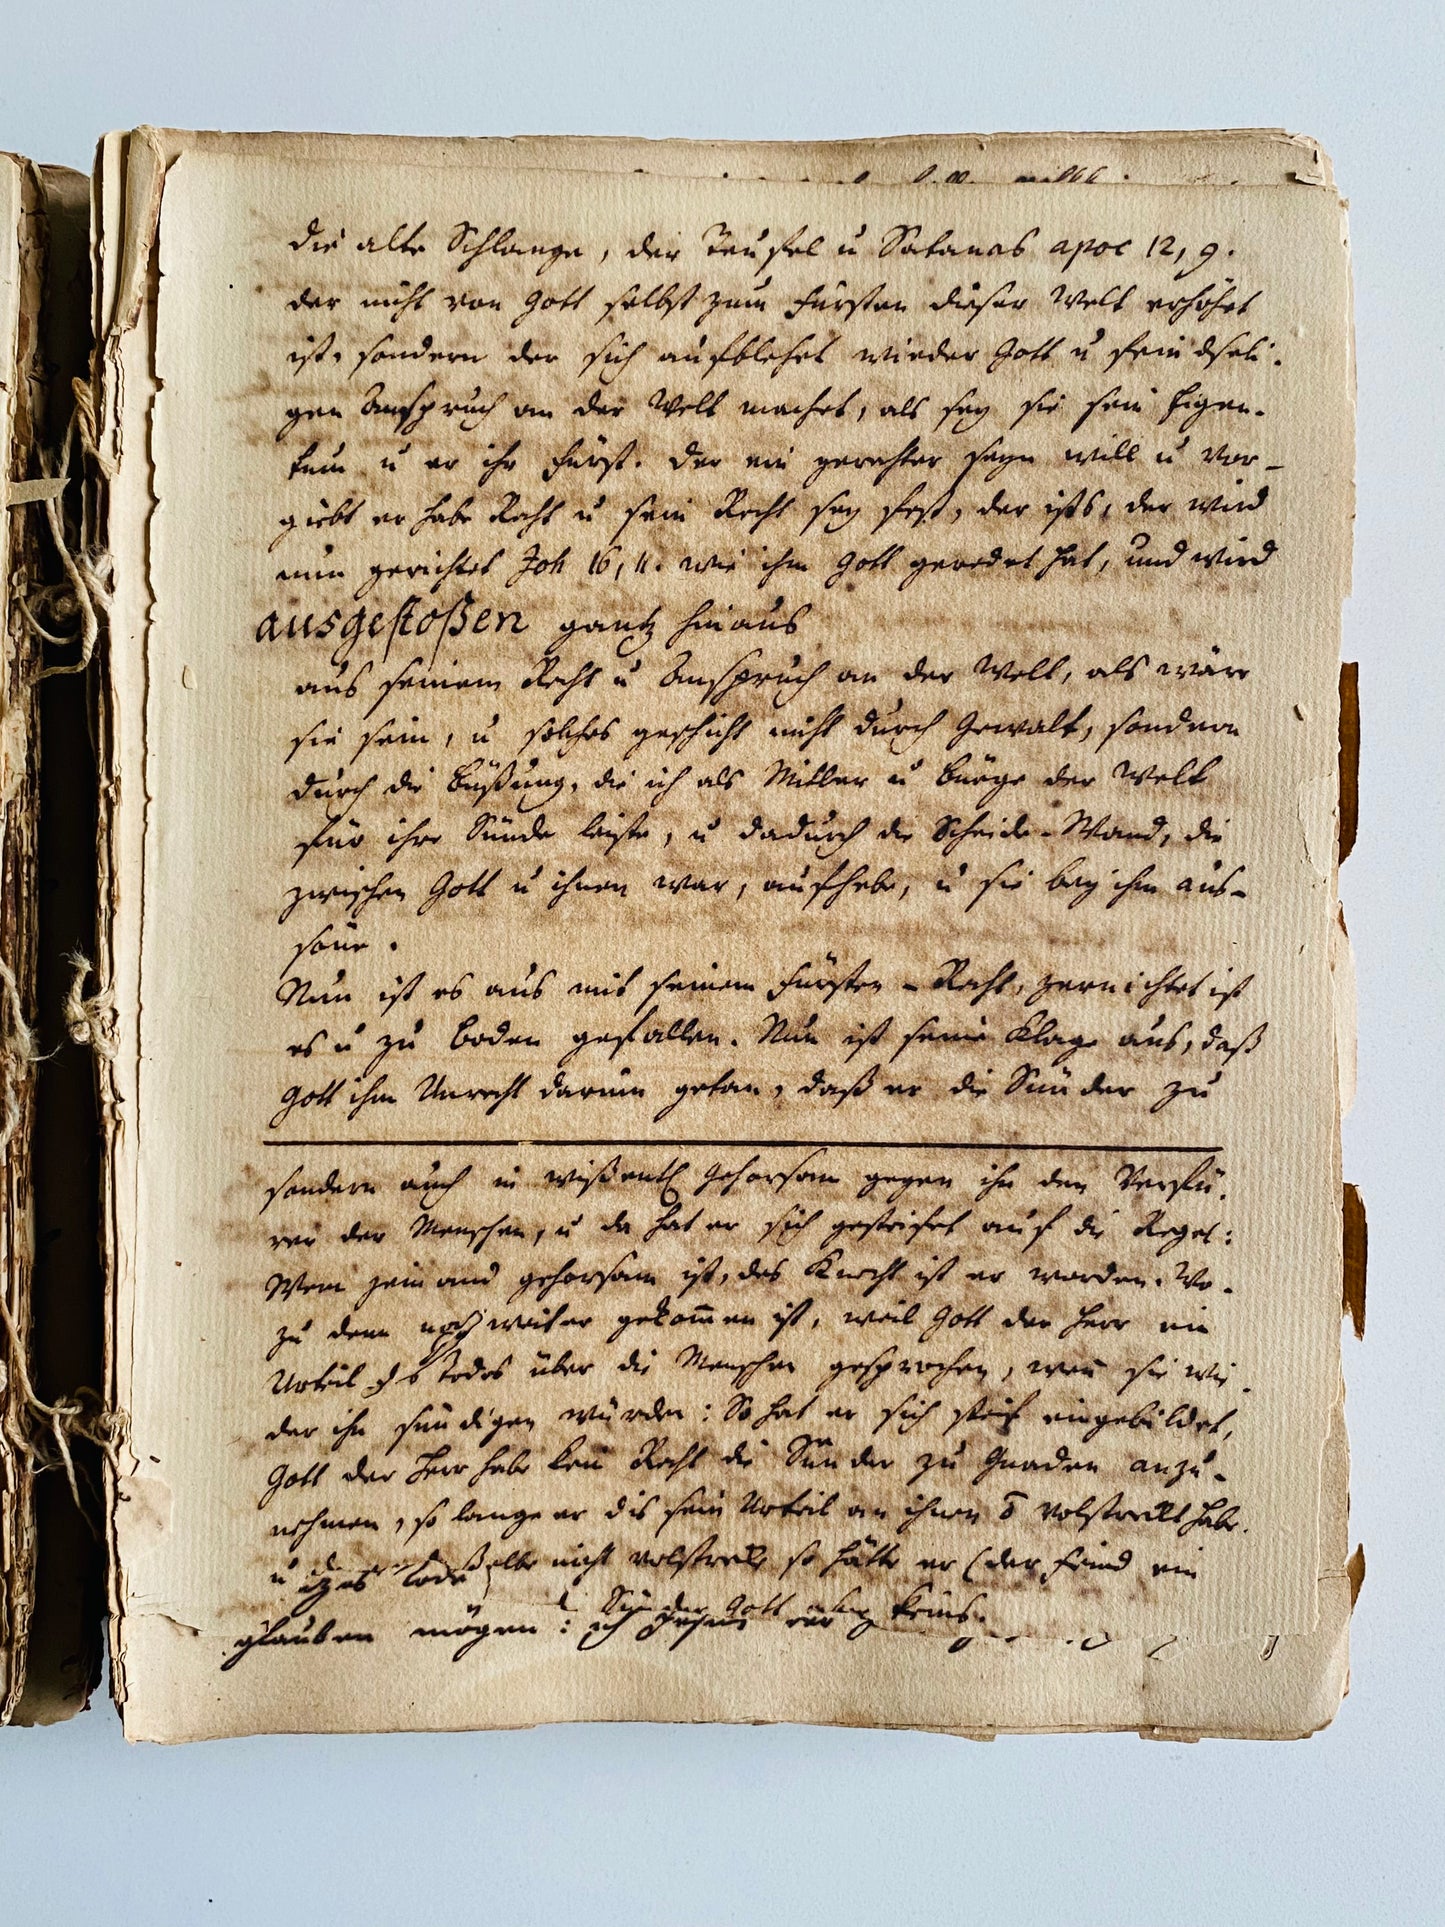 die alte Schlange, der Teufel u Satanas apoc 12, 9.
der nicht von Gott selbst zum Fürsten dieser Welt erhöhet
ist, sondern der sich aufblehet wieder Gott u feindseli-
gen Anspruch an der Welt machet, als sey sie sein Eigen-
tum u er ihr Fürst. der ein gerechter seyn will u vor-
giebt er habe Recht u sein Recht sey fest, der ists, der wird
nun gerichtet Joh 16, 11. wie ihm Gott geredet hat, und wird
ausgestoßen gantz hinaus
aus seinem Recht u Anspruch an der Welt, als wäre
sie sein, u solches geschicht nicht durch Gewalt, sondern
durch die Büßung, die ich als Mitler u Bürge der Welt
für ihre Sünde leiste, u dadurch die Scheide-Wand, die
zwischen Gott u ihnen war, aufhebe, u sie bey ihm aus-
söne.
Nun ist es aus mit seinem Fürsten-Recht, zernichtet ist
es u zu Boden gefallen. Nun ist seine Klage aus, daß
Gott ihm Unrecht darum getan, daß er die Sünder zu
sondern auch in wißentl Gehorsam gegen ihn den Verfü-
rer der Menschen, u da hat er sich gesteifet auf die Regel:
Wem jemand gehorsam ist, des Knecht ist er worden. Wo-
zu denn noch weiter gekom̄en ist, weil Gott der Herr ein
Urteil des Todes über die Menschen gesprochen, wen̄ sie wie-
der ihn sündigen würden: So hat er sich steif eingebildet,
Gott der Herr habe kein Recht die Sünder zu Gnaden anzu-
nehmen, so lange er dis sein Urteil an ihnen volstreckt habe.
u nicht volstreckt so hätte er (der Feind ein
glauben mögen: ich keins.